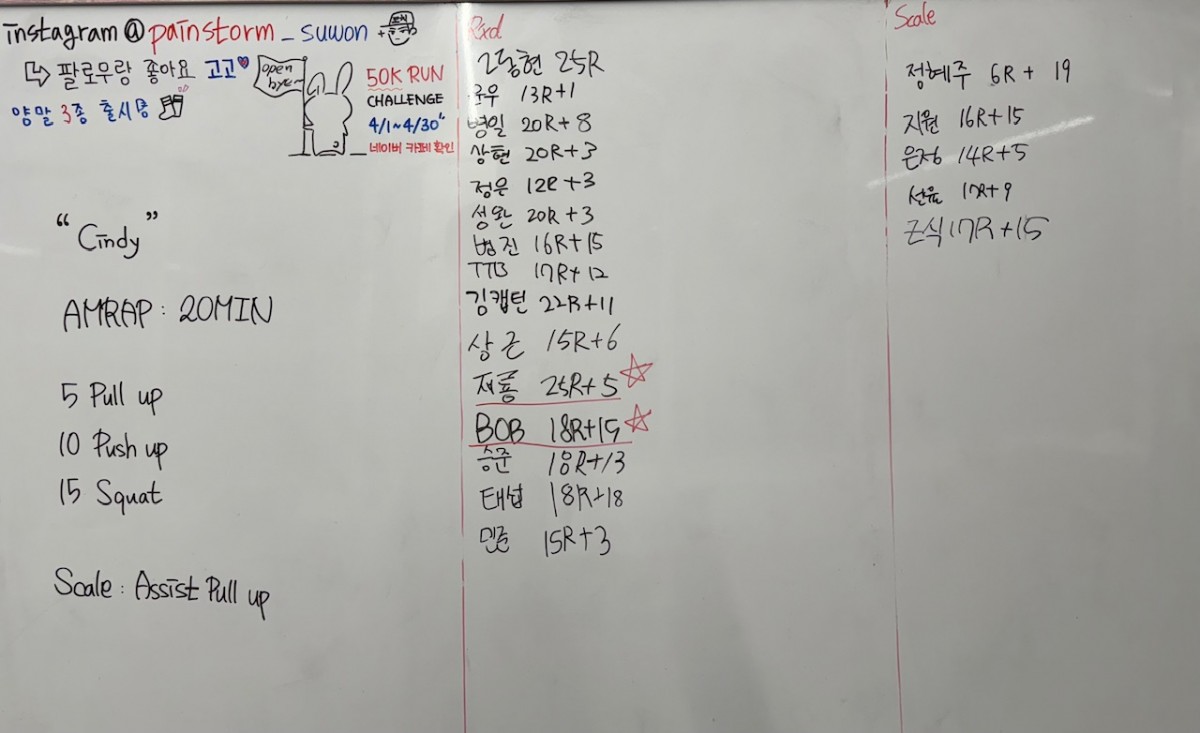 instagram @ painstorm _ suwon
팔로우랑 좋아요 고고
양말 3종 출시중
open
50K RUN
CHALLENGE
4/1~4/30
네이버 카페 확인
"Cindy"
AMRAP : 20MIN
5 Pull up
10 Push up
15 Squat
Scale : Assist Pull up
Rxd
25R
13R+1
병일 20R+8
상현 20R+3
정은 12R+3
성완 20R+3
범진 16R+15
TTB 17R+12
김캡틴 22R+11
상근 15R+6
재룡 25R+5
BOB 18R+19
승준 18R+13
태섭 18R+18
민준 15R+3
Scale
정혜주 6R + 19
지원 16R+15
은정 14R+5
17R+9
근식 17R+15